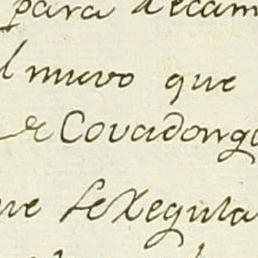 para decam
l nuevo que
de Covadonga
ue se Regula